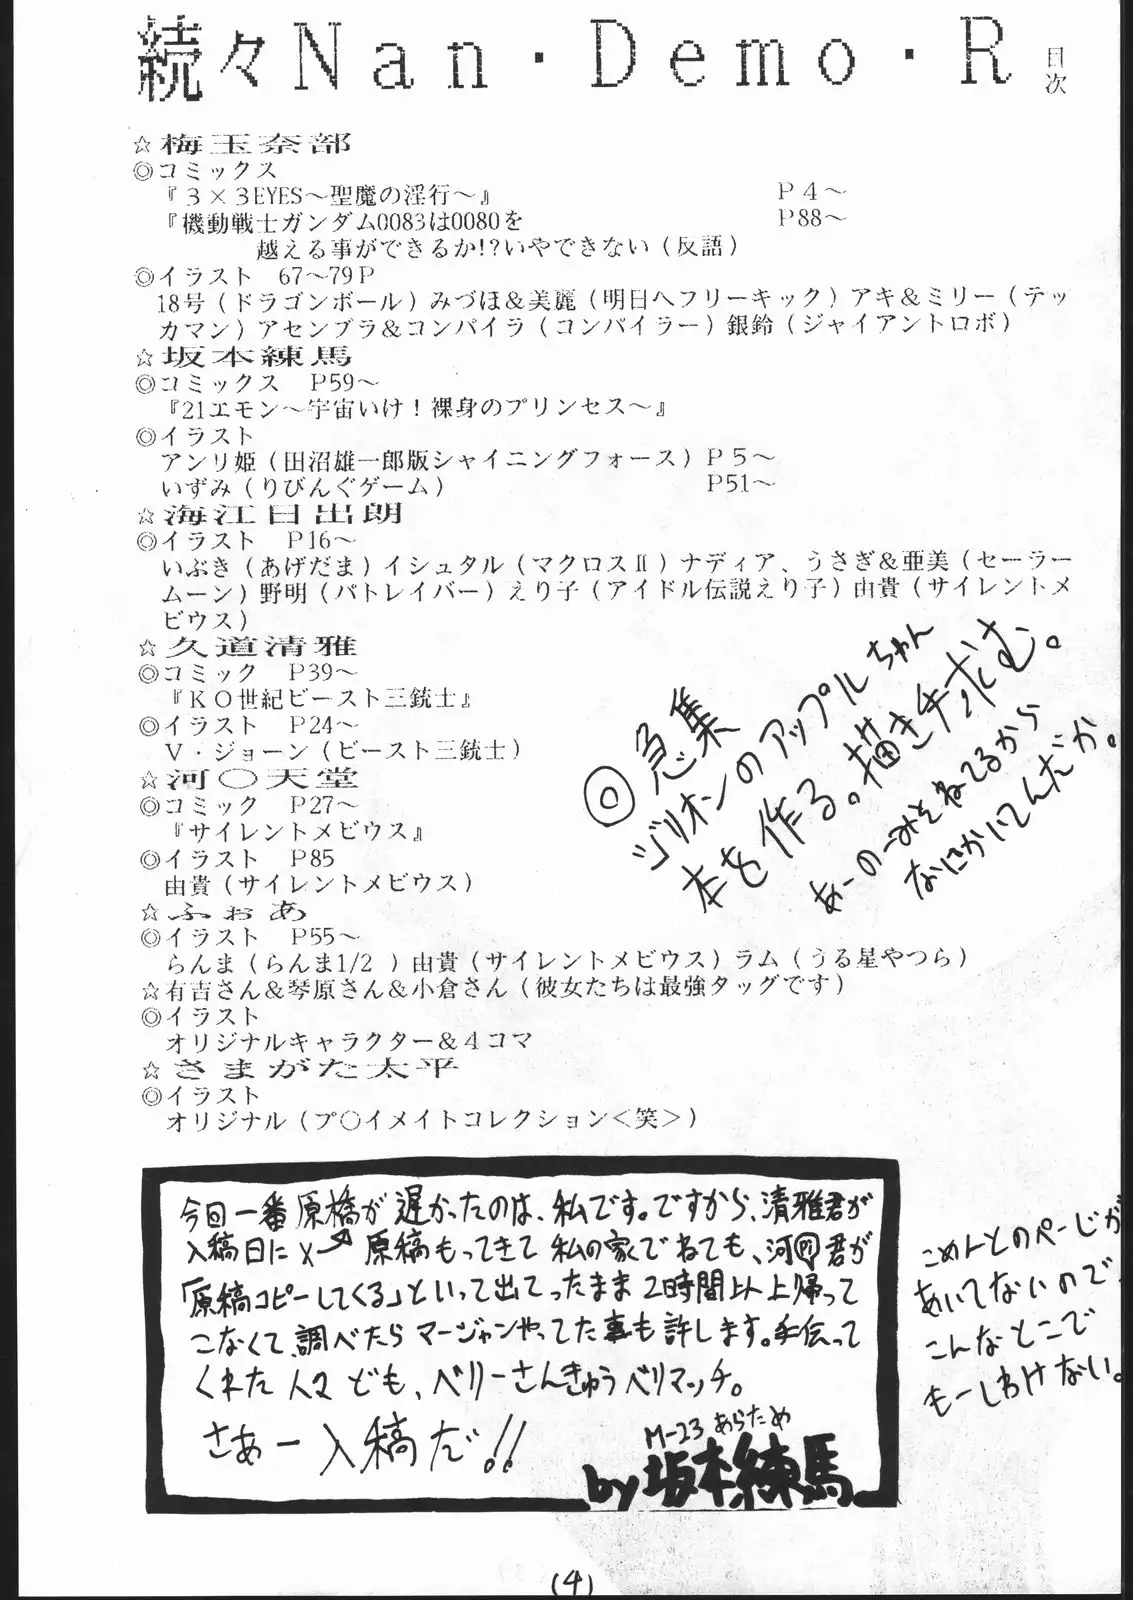 続々Nan・Demo・R 目次
☆梅玉奈部
◎コミックス
『3×3EYES～聖魔の淫行～』 P4～
『機動戦士ガンダム0083は0080を P88～
越える事ができるか!?いやできない（反語）
◎イラスト 67～79P
18号（ドラゴンボール）みづほ＆美麗（明日へフリーキック）アキ＆ミリー（テッ
カマン）アセンブラ＆コンパイラ（コンパイラー）銀鈴（ジャイアントロボ）
☆坂本練馬
◎コミックス P59～
『21エモン～宇宙いけ！裸身のプリンセス～』
◎イラスト
アンリ姫（田沼雄一郎版シャイニングフォース）P5～
いずみ（りびんぐゲーム） P51～
☆海江田出朗
◎イラスト P16～
いぶき（あげだま）イシュタル（マクロスⅡ）ナディア、うさぎ＆亜美（セーラー
ムーン）野明（パトレイバー）えり子（アイドル伝説えり子）由貴（サイレントメ
ビウス）
☆久道清雅
◎コミック P39～
『KO世紀ビースト三銃士』
◎イラスト P24～
V・ジョーン（ビースト三銃士）
☆河○天堂
◎コミック P27～
『サイレントメビウス』
◎イラスト P85
由貴（サイレントメビウス）
☆ふぉあ
◎イラスト P55～
らんま（らんま1/2 ）由貴（サイレントメビウス）ラム（うる星やつら）
☆有吉さん＆琴原さん＆小倉さん（彼女たちは最強タッグです）
◎イラスト
オリジナルキャラクター＆4コマ
☆さまがた太平
◎イラスト
オリジナル（プ○イメイトコレクション＜笑＞）
◎急集
ジリオンのアップルちゃん
本を作る。描き手求む。
あーのーみそねてるから
なにかいてんだか。
今回一番原橋が遅かったのは、私です。ですから、清雅君が
入稿日に 原稿もってきて私の家でねても、河円君が
「原稿コピーしてくる」といって出てったまま2時間以上帰って
こなくて、調べたらマージャンやってた事も許します。手伝って
くれた人々ども、ベリーさんきゅうベリマッチ。
さあー入稿だ!!
M-23 あらため
by坂本練馬
こめんとのぺーじが
あいてないので、
こんなとこで
もーしわけない。
(4)